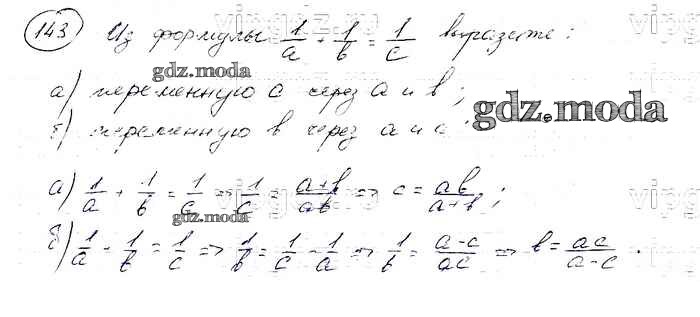 143 Из формулы 1/a + 1/b = 1/c выразите:
gdz.moda
а) переменную c через a и b;
gdz.moda
б) переменную b через a и c.
а) 1/a + 1/b = 1/c ⇒ 1/c = (a+b)/(ab) ⇒ c = ab/(a+b);
gdz.moda
б) 1/a + 1/b = 1/c ⇒ 1/b = 1/c - 1/a ⇒ 1/b = (a-c)/(ac) ⇒ b = ac/(a-c).